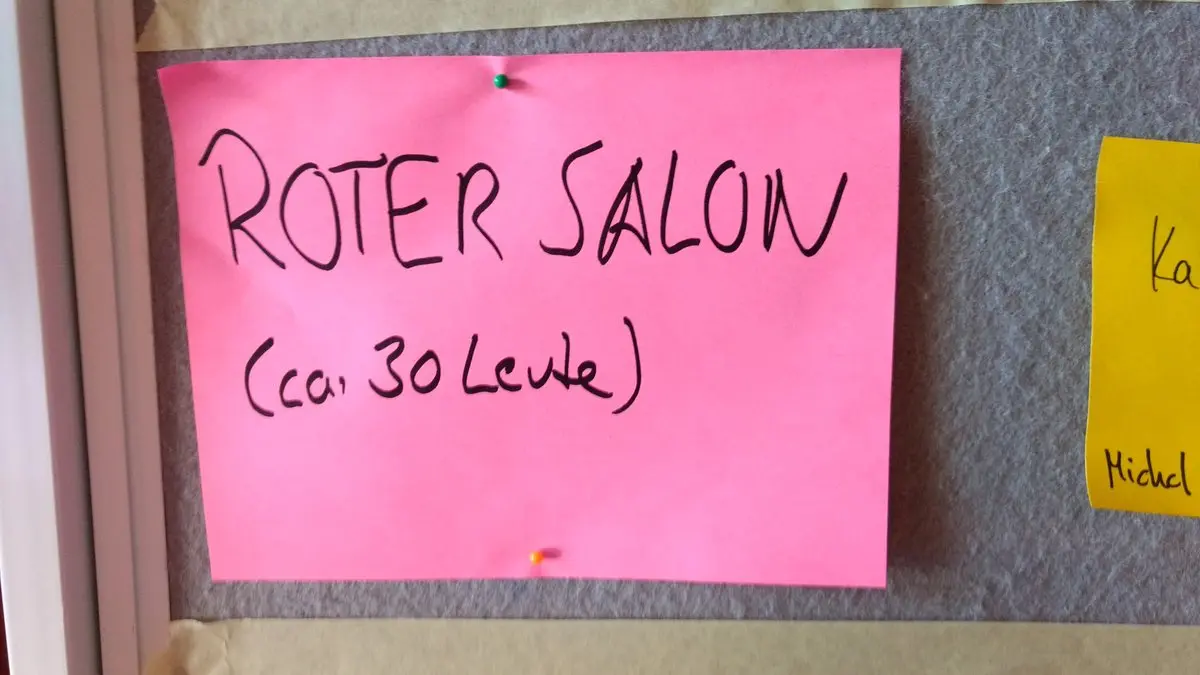 ROTER SALON
(ca. 30 Leute)
Ka
Michel